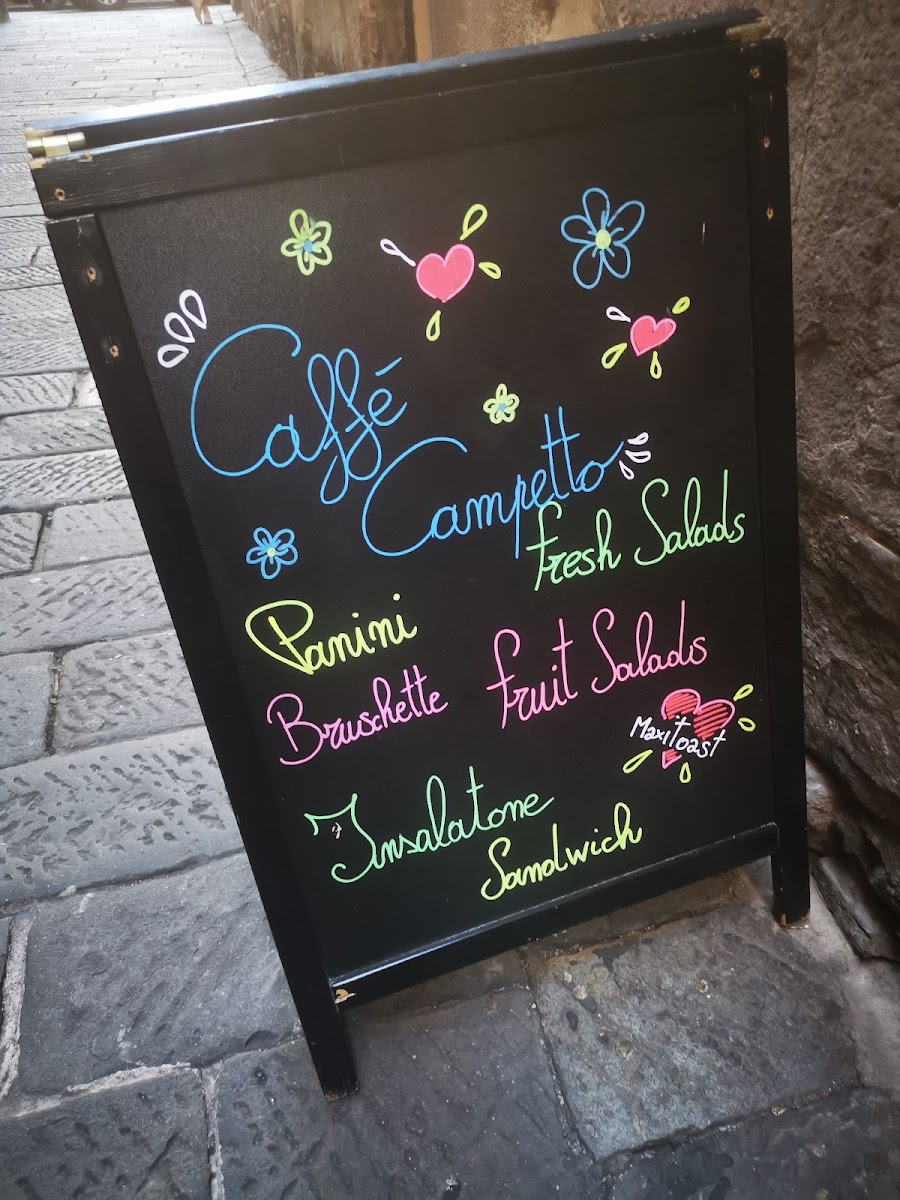 Caffé
Campetto
Fresh Salads
Panini
Fruit Salads
Bruschette
Maxitoast
Insalatone
Sandwich